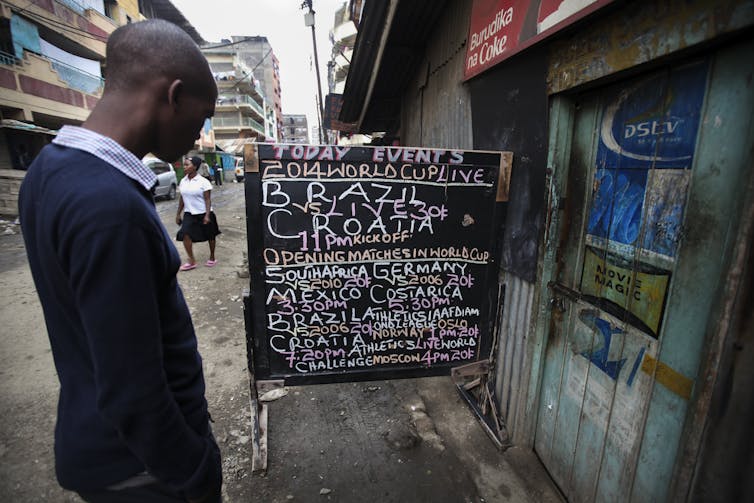 TODAY EVENTS
2014 WORLD CUP LIVE
BRAZIL
VS LIVE 30/=
CROATIA
11PM KICKOFF
OPENING MATCHES IN WORLD CUP
SOUTHAFRICA GERMANY
VS 2010 20/= VS 2006 20/=
MEXICO COSTARICA
3:30PM 5:30PM
BRAZIL ATHLETICS IAAF DIAM
VS 2006 20/= OND LEAGUE OSLO
CROATIA NORWAY 1PM 20/=
7:20PM ATHLETICS LIVE WORLD
CHALLENGE MOSCOW 4PM 20/=
Burudika
na Coke
DSTV
MOVIE
MAGIC